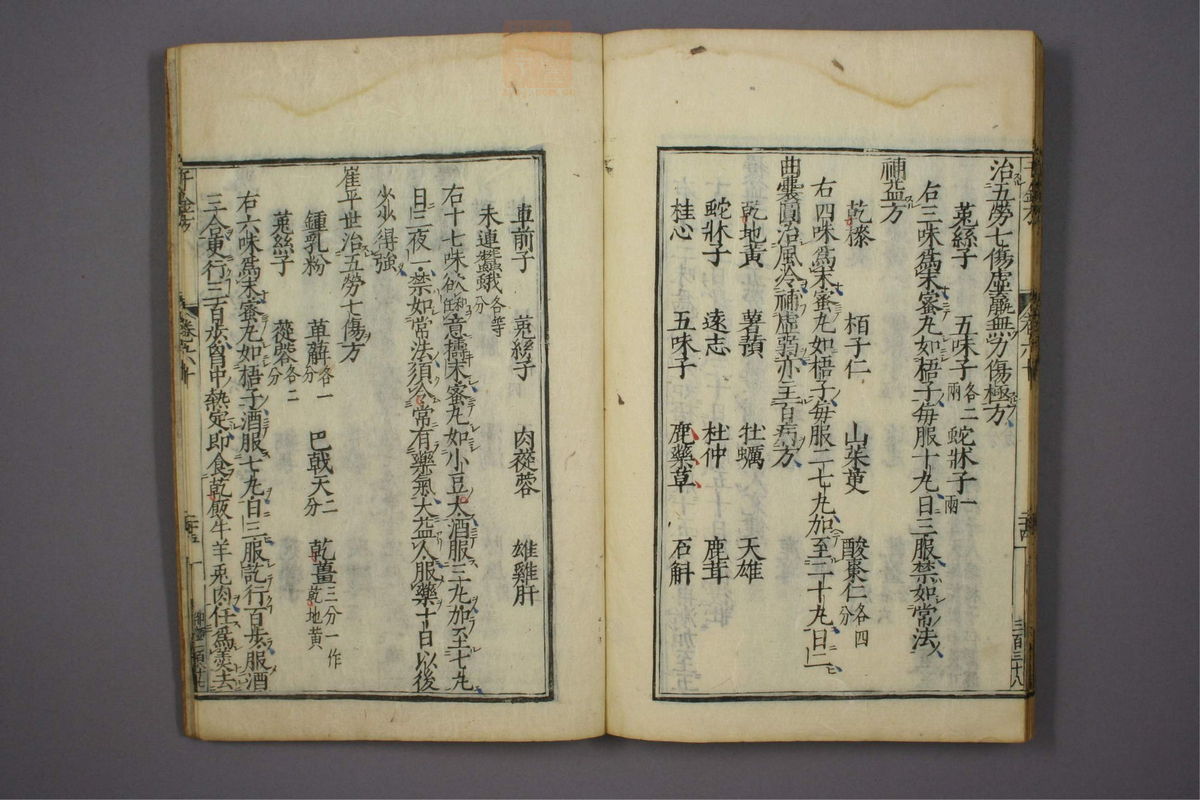 治五勞七傷虛羸無力傷極方
菟絲子 五味子各二兩 蛇牀子一兩
右三味爲末蜜丸如梧子每服十丸日三服禁如常法
補益方
乾漆 栢子仁 山茱萸 酸棗仁各四分
右四味爲末蜜丸如梧子每服二七丸加至二十丸日二
曲囊圓治風冷補虛弱亦主百病方
乾地黃 薯蕷 牡蠣 天雄
蛇牀子 遠志 杜仲 鹿茸
桂心 五味子 鹿藥草 石斛
車前子 菟絲子 肉蓯蓉 雄雞肝
未連蠶蛾各等分
右十七味欲和任意擣末蜜丸如小豆大酒服三丸加至七丸
日三夜一禁如常法須令常有藥氣大益人服藥十日以後
少少得強
崔平世治五勞七傷方
鍾乳粉 萆薢各一分 巴戟天二分 乾薑三分一作乾地黄
菟絲子 蓯蓉各二分
右六味爲末蜜丸如梧子酒服七丸日三服訖行百步服酒
三合更行三百步胷中熱定即食乾飯牛羊兎肉任爲羹去
千金方
卷六十
三百三十八
千金方
卷六十